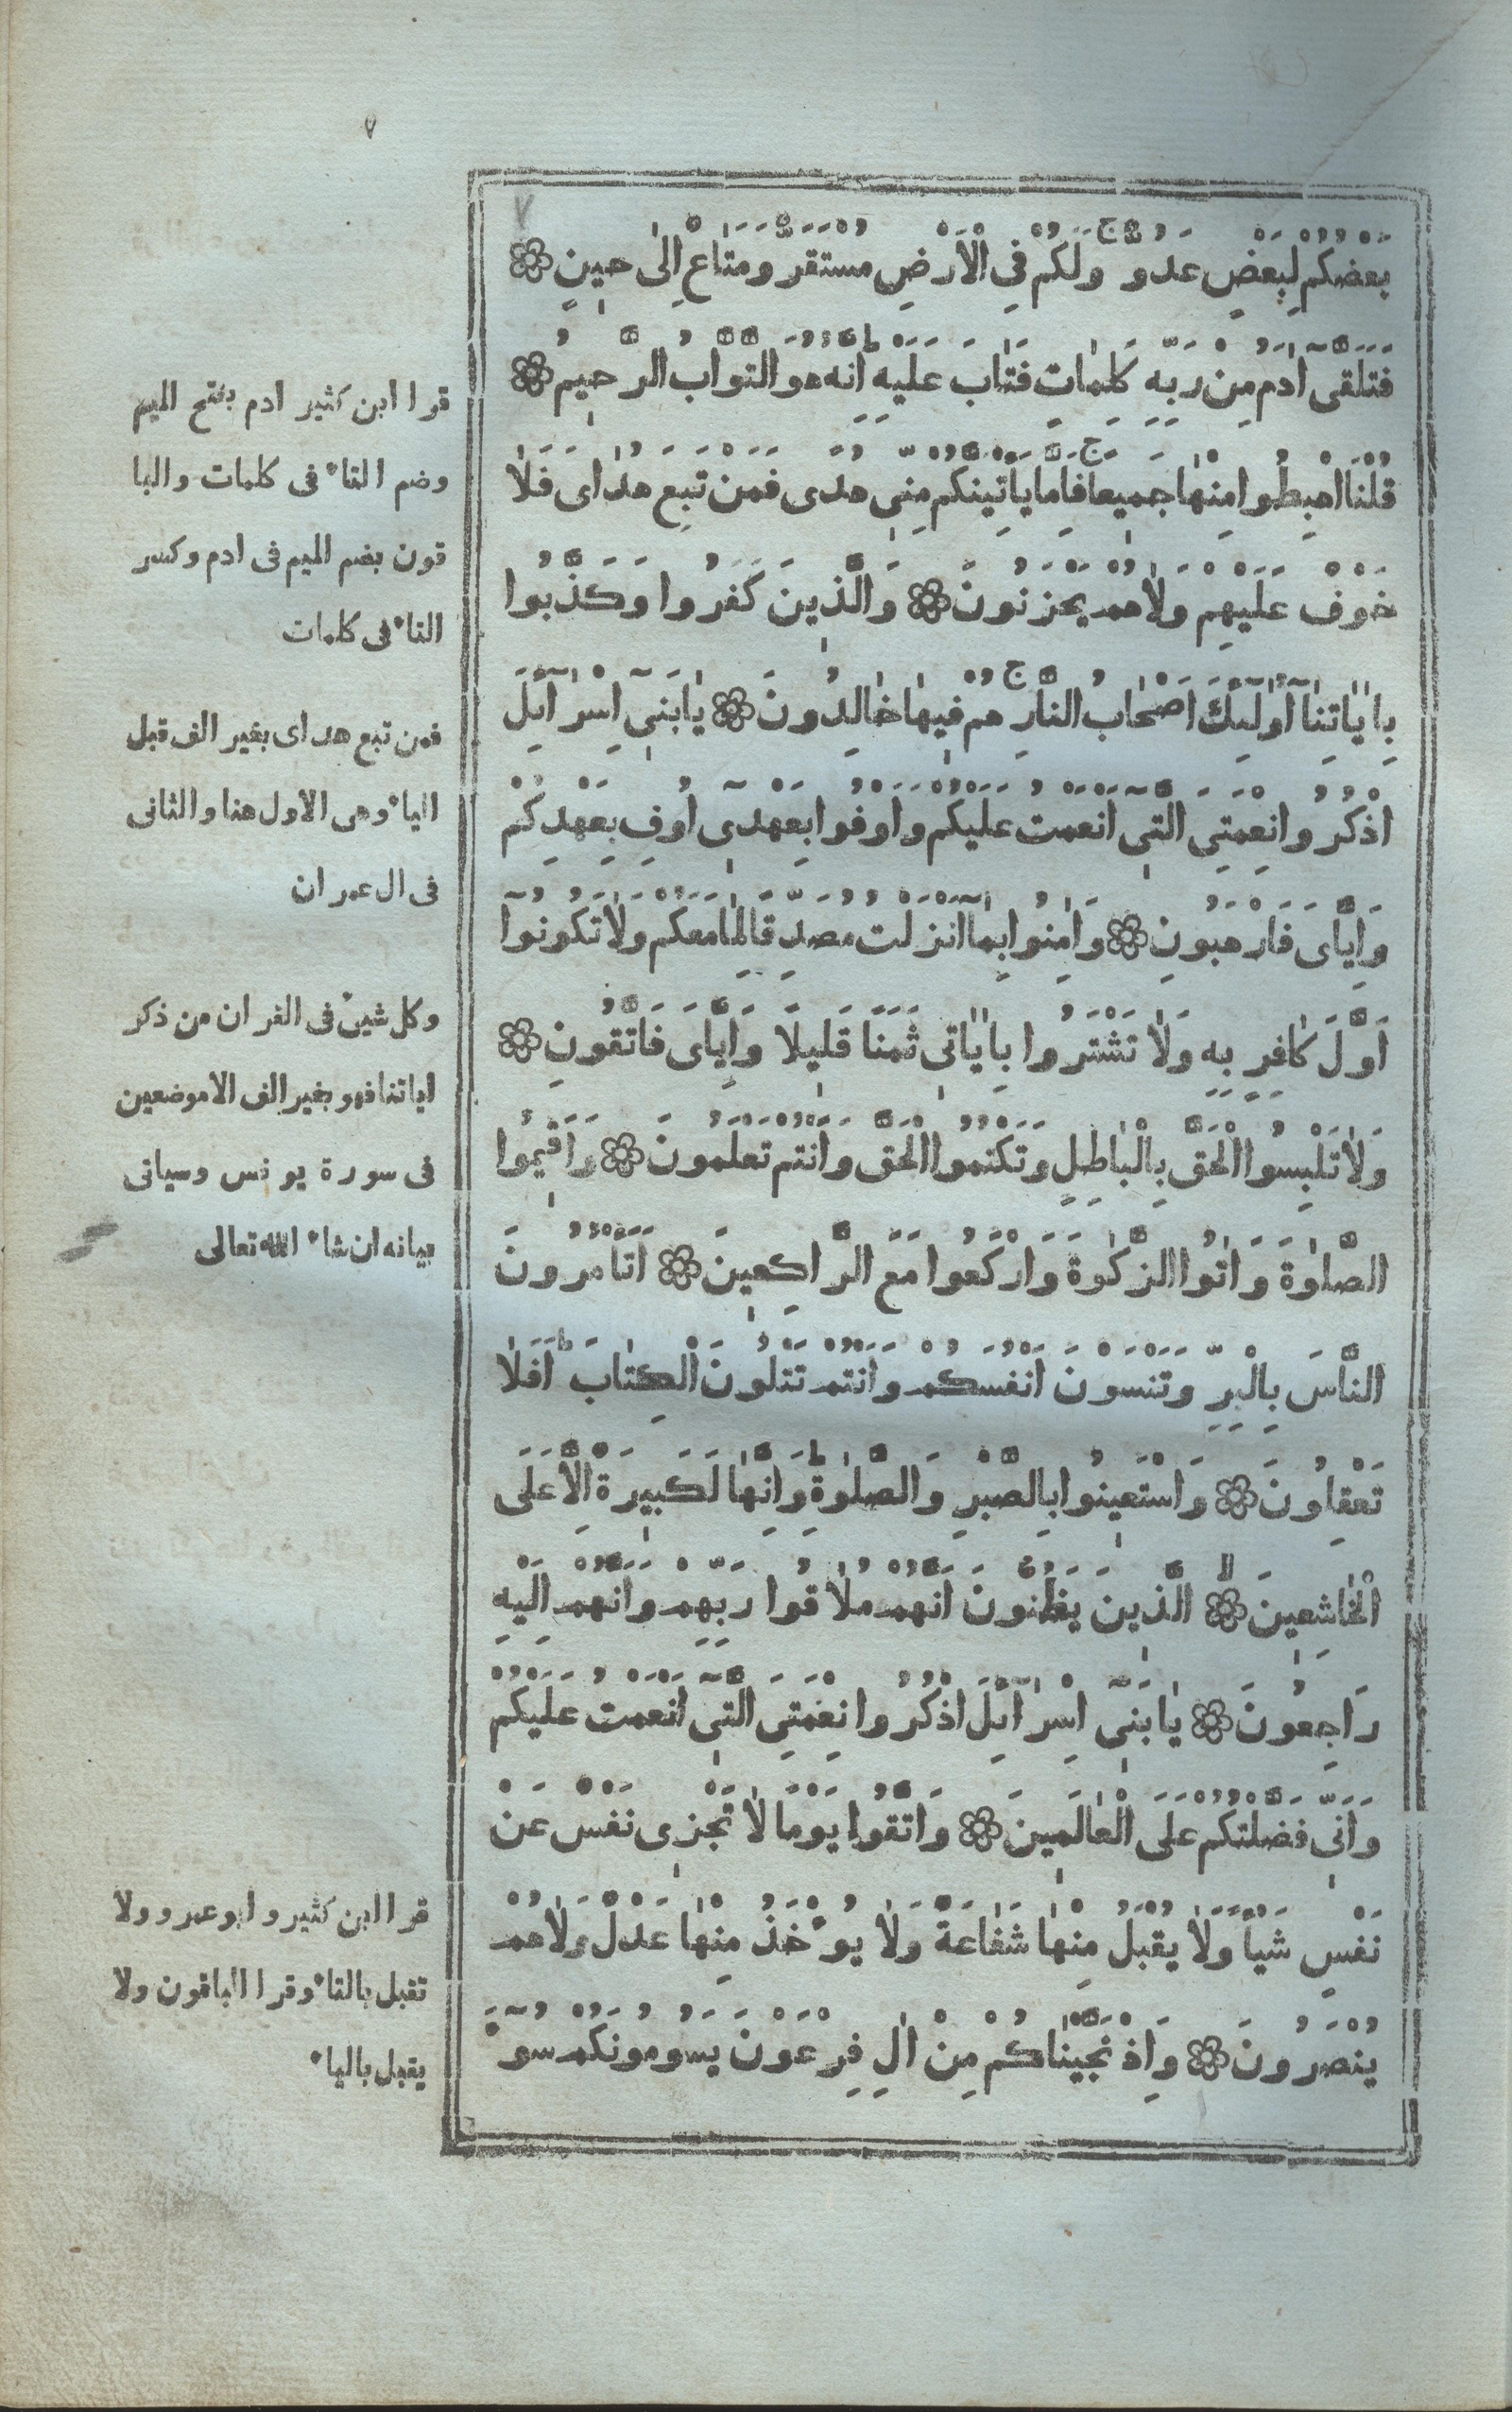 ٧
٧
بَعْضُكُمْ لِبَعْضٍ عَدُوٌّ ج وَلَكُمْ فِى الْاَرْضِ مُسْتَقَرٌّ وَمَتَاعٌ اِلٰى حٖينٍ
فَتَلَقّٰٓى اٰدَمُ مِنْ رَبِّهٖ كَلِمَاتٍ فَتَابَ عَلَيْهِ ط اِنَّهُ هُوَ التَّوَّابُ الرَّحٖيمُ
قُلْنَا اهْبِطُوا مِنْهَا جَمٖيعًا ج فَاِمَّا يَاْتِيَنَّكُمْ مِنّٖى هُدًى فَمَنْ تَبِعَ هُدَاىَ فَلَا
خَوْفٌ عَلَيْهِمْ وَلَا هُمْ يَحْزَنُونَ وَالَّذٖينَ كَفَرُوا وَكَذَّبُوا
بِاٰيَاتِنَٓا اُولٰٓئِكَ اَصْحَابُ النَّارِ ج هُمْ فٖيهَا خَالِدُونَ يَا بَنٖٓى اِسْرَٓائٖلَ
اذْكُرُوا نِعْمَتِىَ الَّتٖٓى اَنْعَمْتُ عَلَيْكُمْ وَاَوْفُوا بِعَهْدٖٓى اُوفِ بِعَهْدِكُمْ
وَاِيَّاىَ فَارْهَبُونِ وَاٰمِنُوا بِمَٓا اَنْزَلْتُ مُصَدِّقًا لِمَا مَعَكُمْ وَلَا تَكُونُٓوا
اَوَّلَ كَافِرٍ بِهٖ وَلَا تَشْتَرُوا بِاٰيَاتٖى ثَمَنًا قَلٖيلًا وَاِيَّاىَ فَاتَّقُونِ
وَلَا تَلْبِسُوا الْحَقَّ بِالْبَاطِلِ وَتَكْتُمُوا الْحَقَّ وَاَنْتُمْ تَعْلَمُونَ وَاَقٖيمُوا
الصَّلٰوةَ وَاٰتُوا الزَّكٰوةَ وَارْكَعُوا مَعَ الرَّاكِعٖينَ اَتَاْمُرُونَ
النَّاسَ بِالْبِرِّ وَتَنْسَوْنَ اَنْفُسَكُمْ وَاَنْتُمْ تَتْلُونَ الْكِتَابَ ط اَفَلَا
تَعْقِلُونَ وَاسْتَعٖينُوا بِالصَّبْرِ وَالصَّلٰوةِ ط وَاِنَّهَا لَكَبٖيرَةٌ اِلَّا عَلَى
الْخَاشِعٖينَ لا الَّذٖينَ يَظُنُّونَ اَنَّهُمْ مُلَاقُوا رَبِّهِمْ وَاَنَّهُمْ اِلَيْهِ
رَاجِعُونَ يَا بَنٖٓى اِسْرَٓائٖلَ اذْكُرُوا نِعْمَتِىَ الَّتٖٓى اَنْعَمْتُ عَلَيْكُمْ
وَاَنّٖى فَضَّلْتُكُمْ عَلَى الْعَالَمٖينَ وَاتَّقُوا يَوْمًا لَا تَجْزٖى نَفْسٌ عَنْ
نَفْسٍ شَيْاً وَلَا يُقْبَلُ مِنْهَا شَفَاعَةٌ وَلَا يُؤْخَذُ مِنْهَا عَدْلٌ وَلَا هُمْ
يُنْصَرُونَ وَاِذْ نَجَّيْنَاكُمْ مِنْ اٰلِ فِرْعَوْنَ يَسُومُونَكُمْ سُوٓءَ
قرا ابن كثير ادم بفتح الميم
وضم التاء فى كلمات والبا
قون بضم الميم فى ادم وكسر
التاء فى كلمات
فمن تبع هداى بغير الف قبل
الياء وهى الاول هنا والثانى
فى ال عمران
وكل شيئ فى القران من ذكر
اياتنا فهو بغير الف الا موضعين
فى سورة يونس وسياتى
بيانه ان شاء الله تعالى
قرا ابن كثير و ابو عمرو ولا
تقبل بالتاء وقرا الباقون ولا
يقبل بالياء